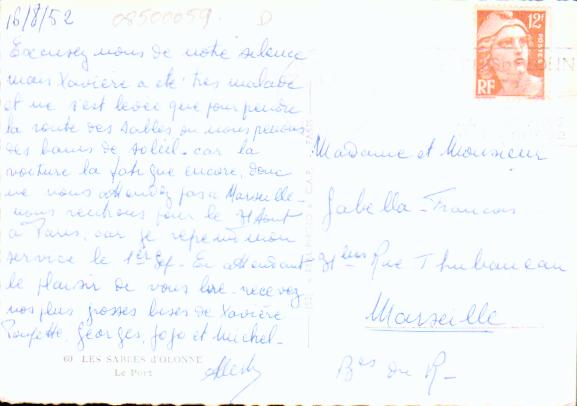 16/8/52
08500059
D
Excusez nous de notre silence
mais Xavière a été très malade
et ne s'est levée que pour prendre
la route des Sables où nous prenons
des bains de soleil - car la
voiture la fatigue encore, donc
ne nous attendez pas à Marseille -
nous rentrons pour le 31 Août
à Paris, car je reprends mon
service le 1er Sep - En attendant
le plaisir de vous lire - recevez
nos plus grosses bises de Xavière
Georges, Jojo et Michel -
60 LES SABLES d'OLONNE
Le Port
12F
POSTES
RF
Madame et Monsieur
Gabella - François
31 bis Rue Thubaneau
Marseille
Bes du R -